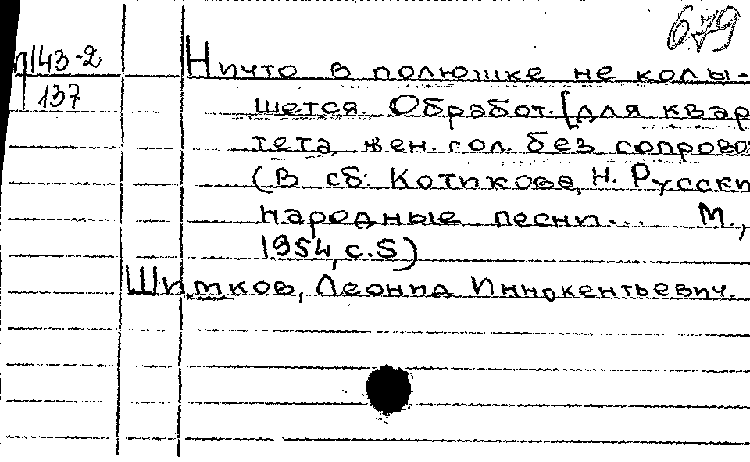 679
П143-2
137
Ничто в полюшке не колы-
шется. Обработ. [для квар
тета жен. гол. без сопрово
(В сб: Котикова, Н. Русски
народные песни... М.,
1954, с.5)
Шимков, Леонид Иннокентьевич.